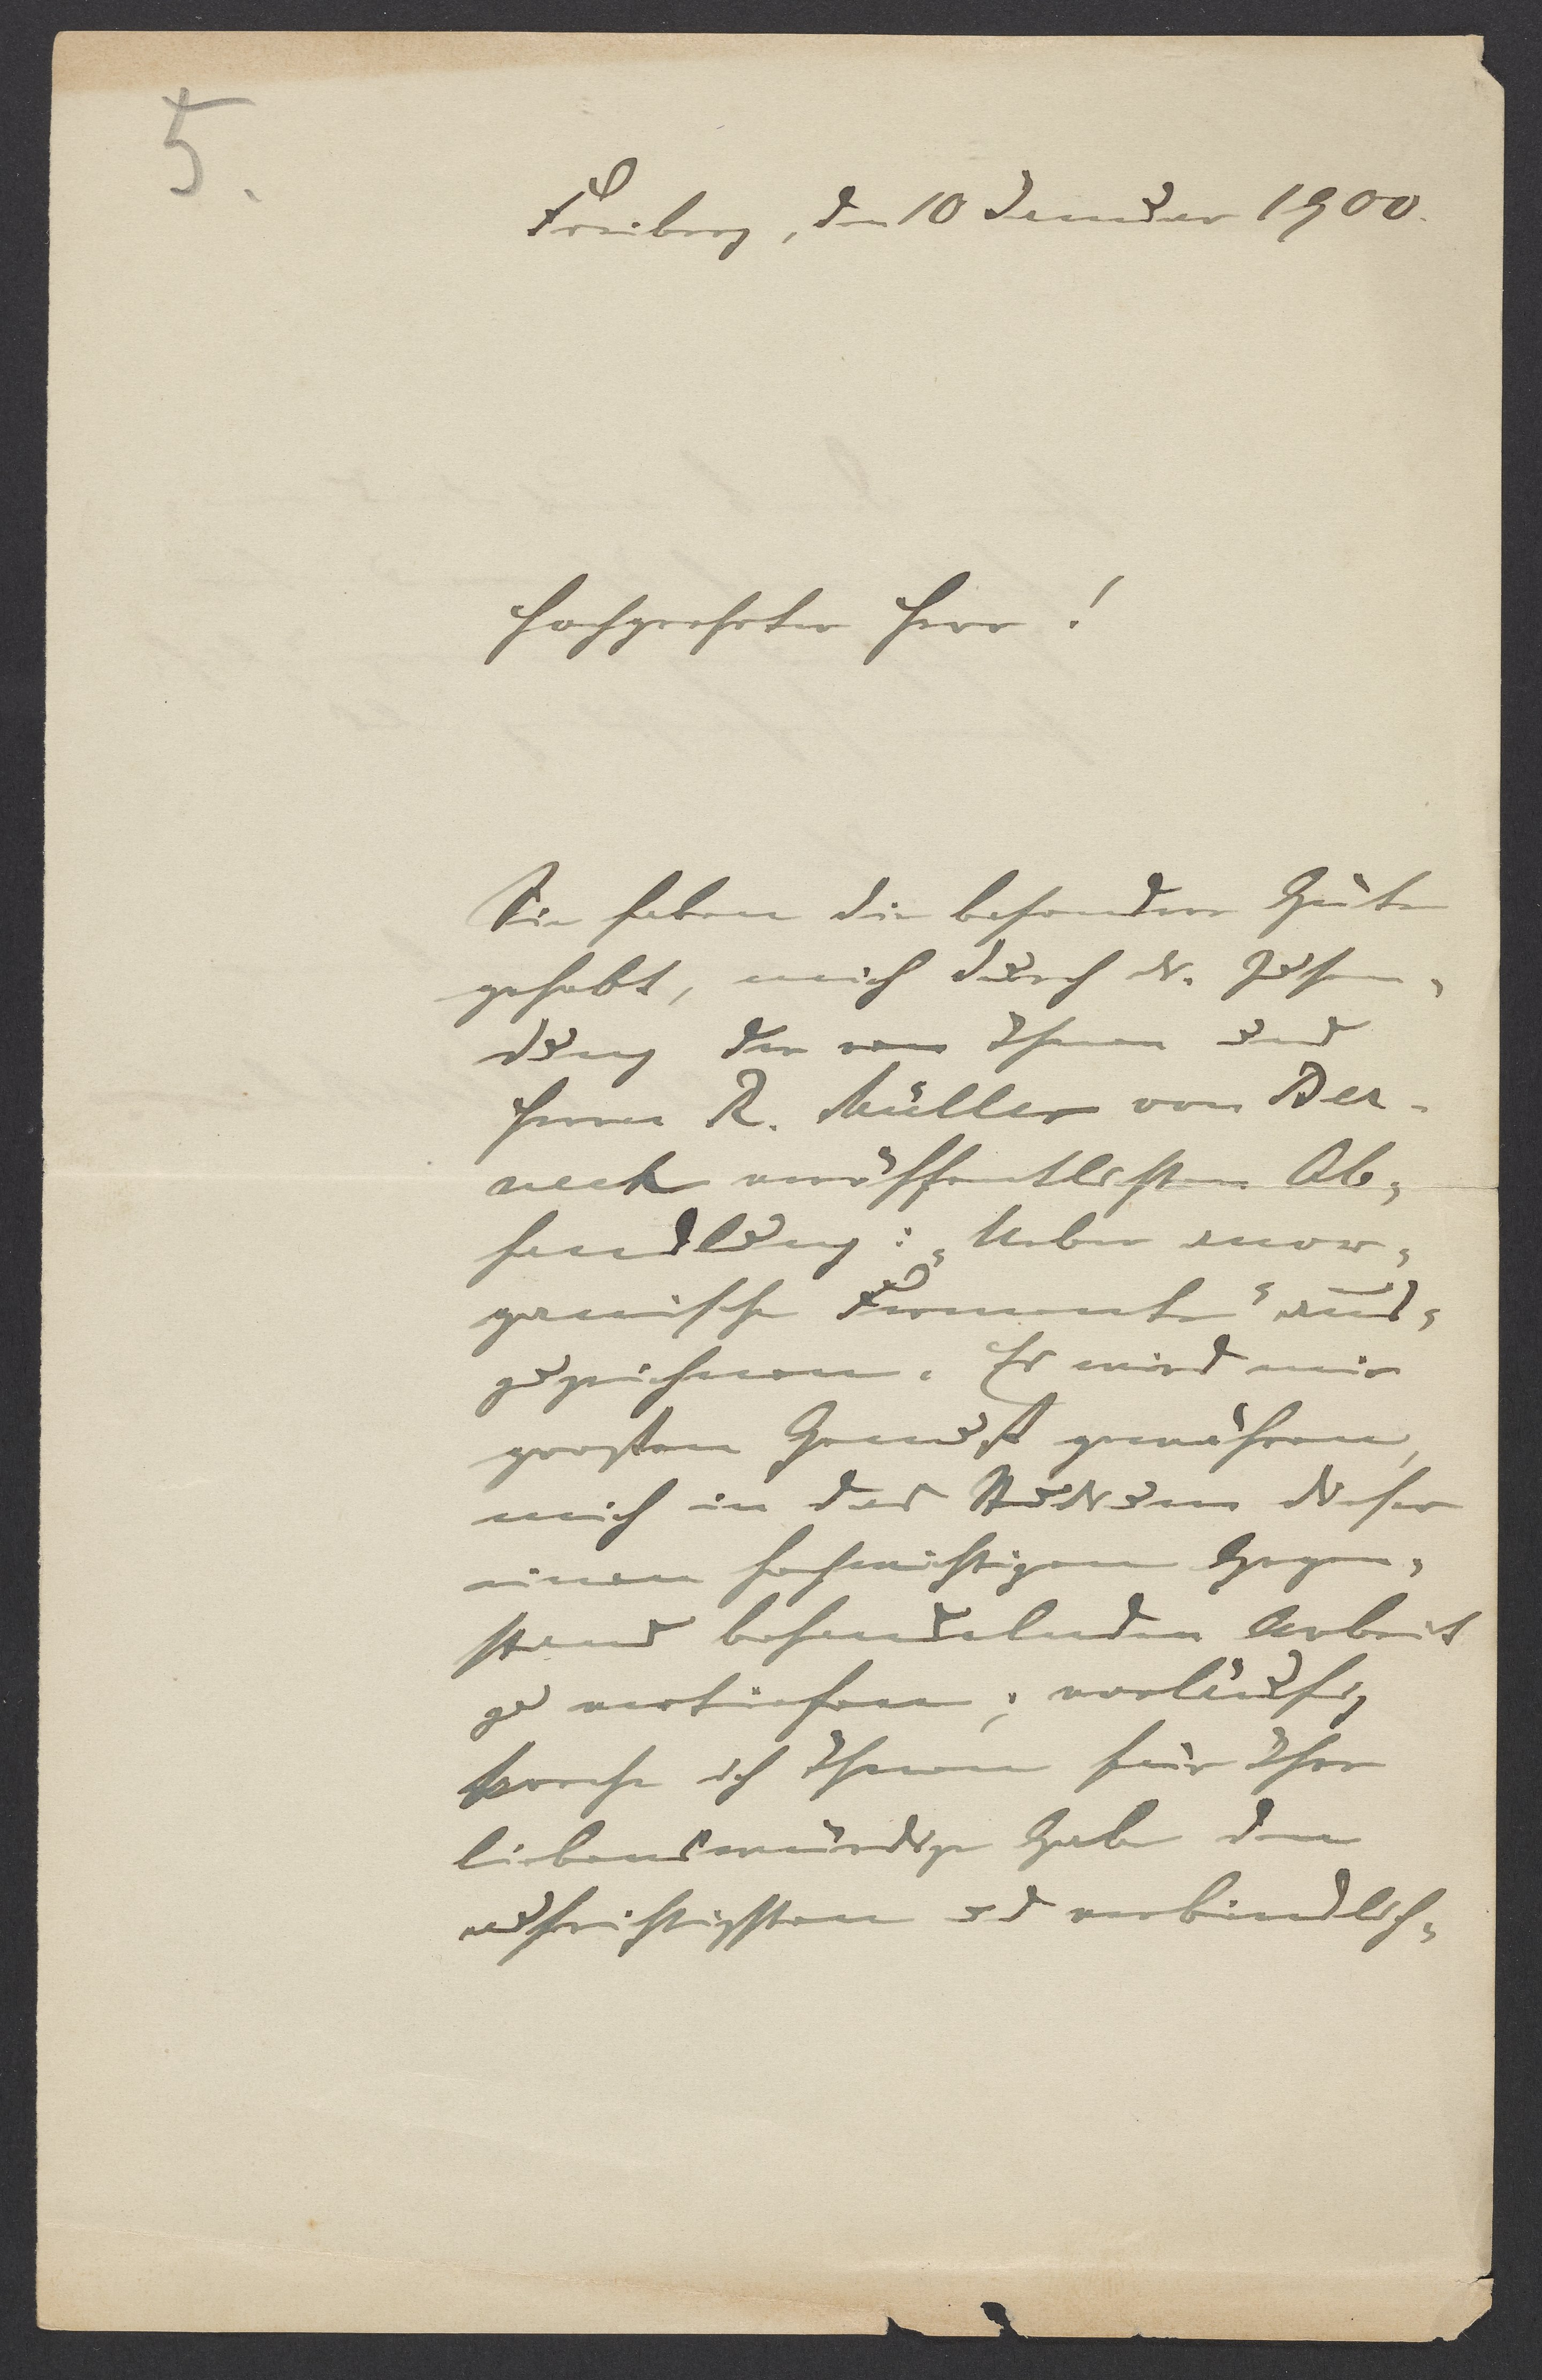 5.
Freiberg, den 10 Januar 1900.
Hochgeehrter Herr!
Sie haben die besondere Güte
gehabt, mich durch die Zusen-
dung der von Ihnen und
Herrn R. Müller von Ber-
neck veröffentlichten Ab-
handlung: „Ueber anor-
ganische Fermente“ aus-
zuzeichnen. Es wird mir
großen Genuß gewähren,
mich in das Studium dieser
einen hochwichtigen Gegen-
stand behandelnden Arbeit
zu vertiefen; vorläufig
spreche ich Ihnen für Ihre
liebenswürdige Gabe den
aufrichtigsten und verbindlich-